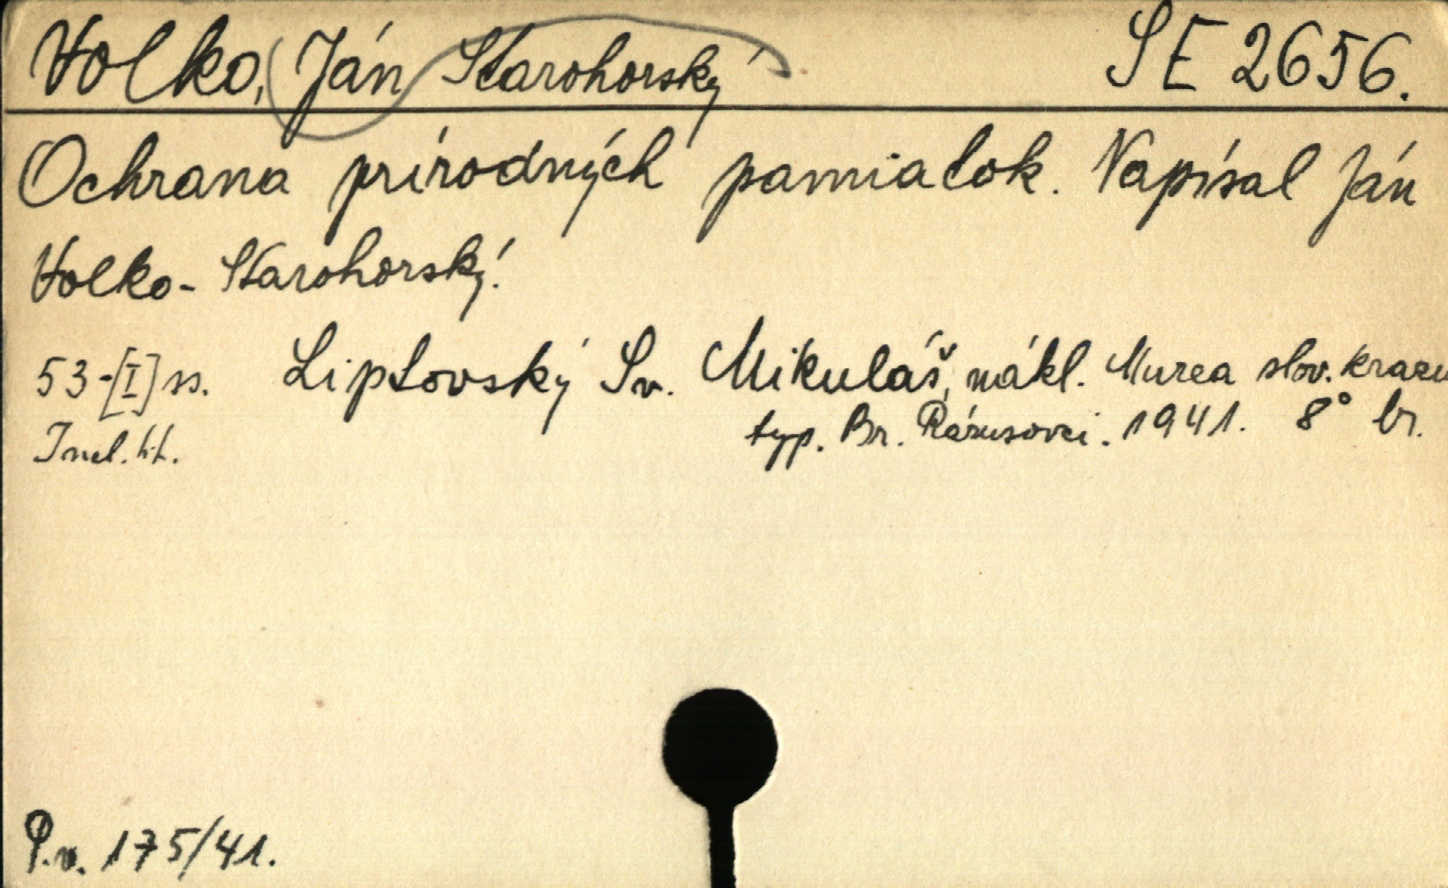 Volko, Ján Starohorský SE 2656.
Ochrana prírodných pamiatok. Napísal Ján
Volko-Starohorský.
53-[I] ss. Liptovský Sv. Mikuláš, nákl. Murea slov. krazu
Incl. tit. typ. Br. Rázusovci. 1941. 8° br.
P.v. 175/41.